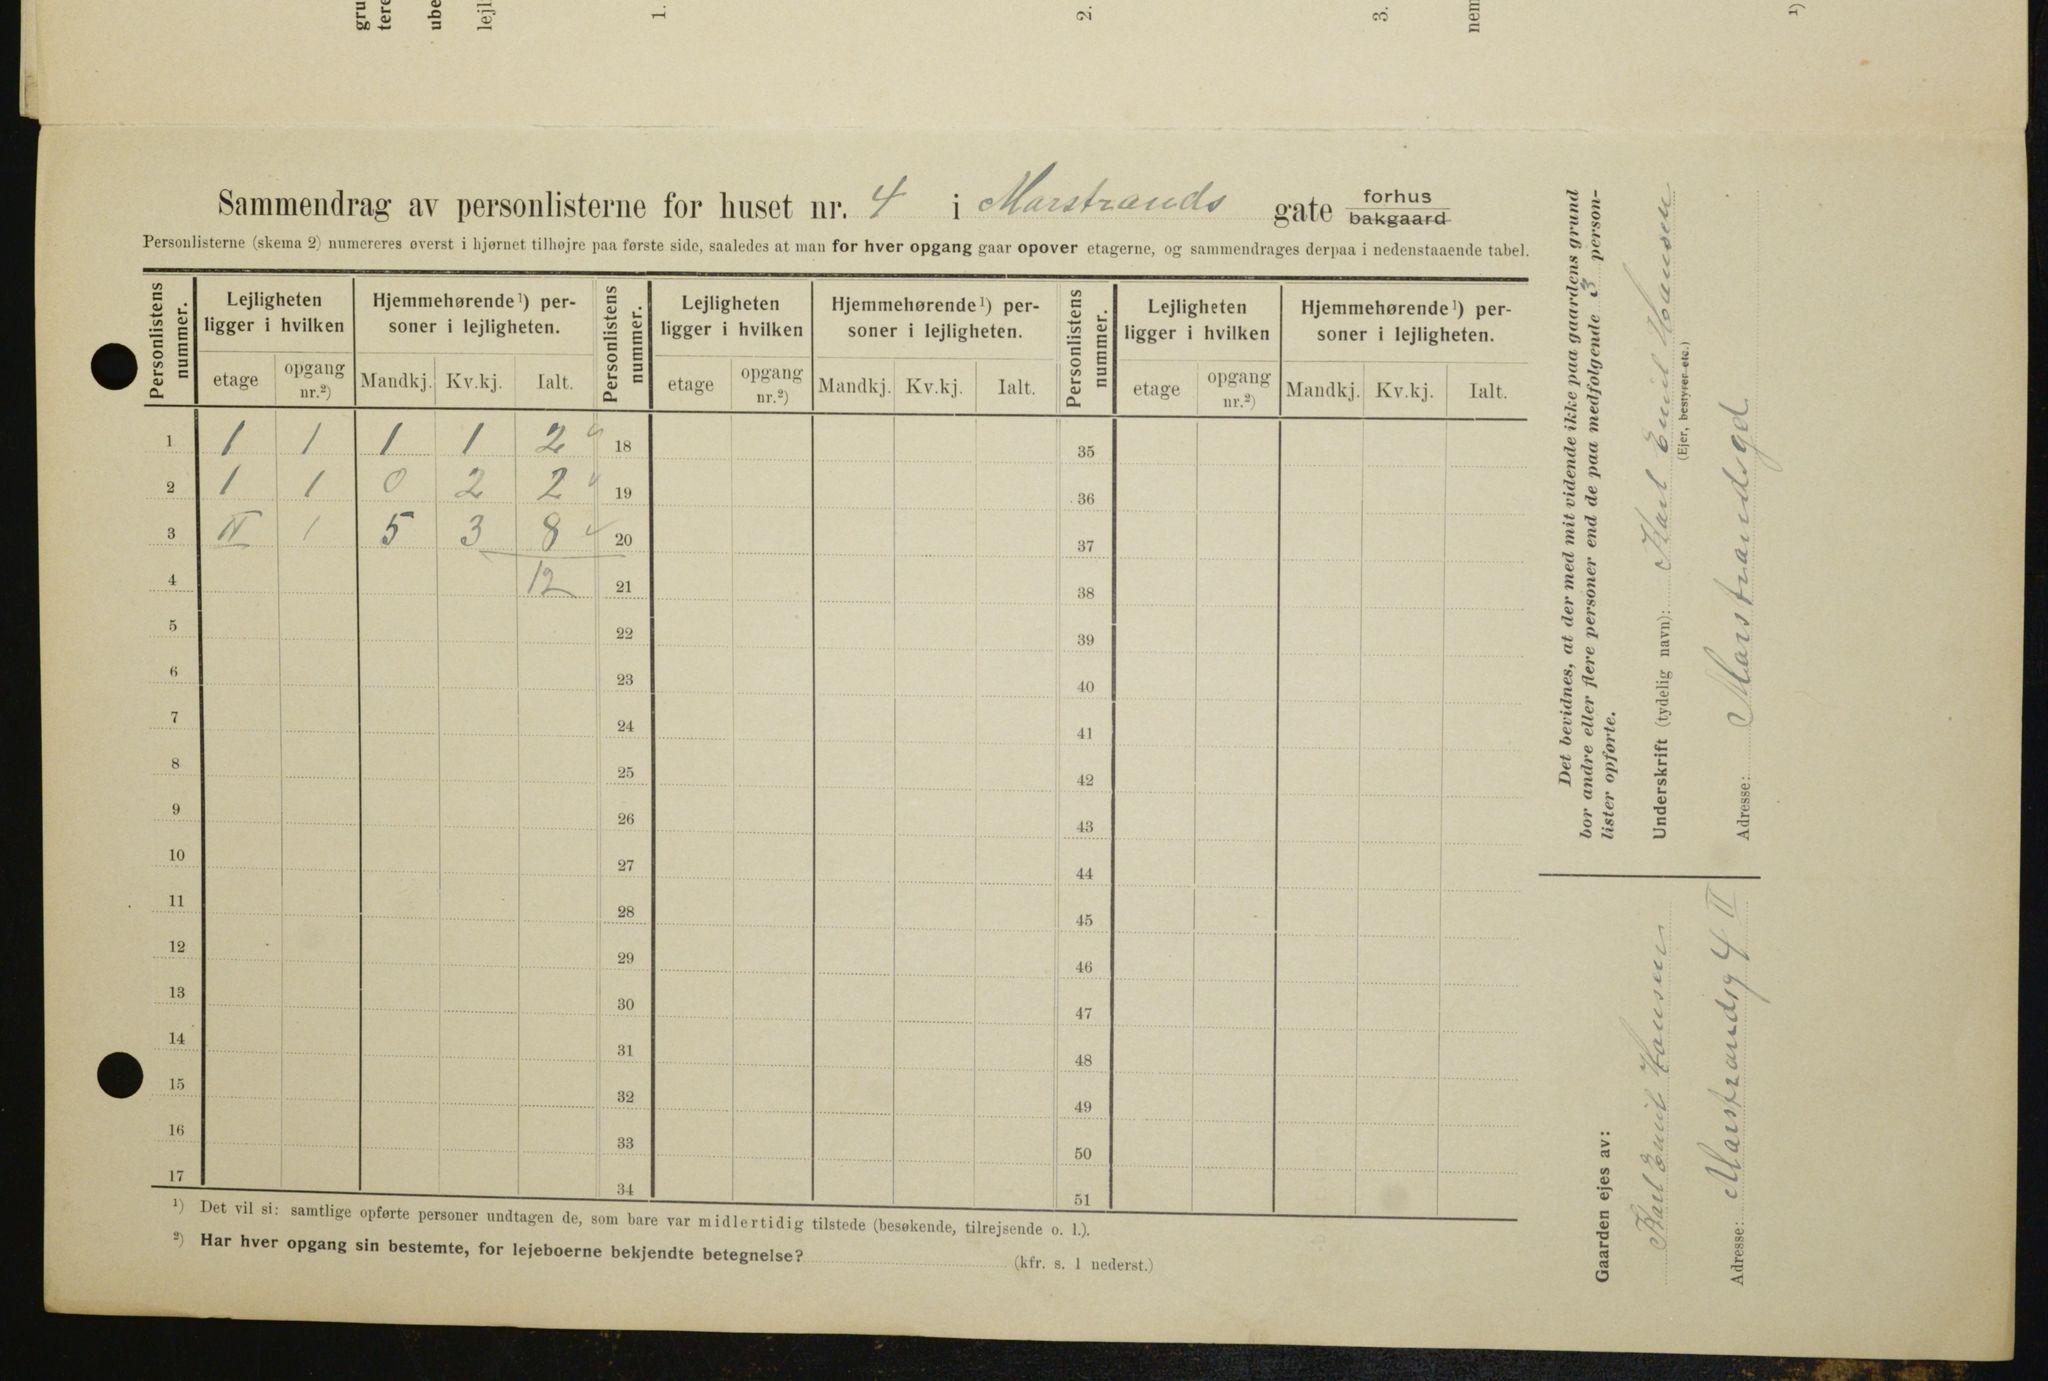 gru
tere
ube
lejl
1.
2.
3.
nem
1)
Sammendrag av personlisterne for huset nr. 4 i Marstrands gate forhus bakgaard
Personlisterne (skema 2) numereres øverst i hjørnet tilhøjre paa første side, saaledes at man for hver opgang gaar opover etagerne, og sammendrages derpaa i nedenstaaende tabel.
Personlistens nummer. Lejligheten ligger i hvilken Hjemmehørende¹) personer i lejligheten. Personlistens nummer. Lejligheten ligger i hvilken Hjemmehørende¹) personer i lejligheten. Personlistens nummer. Lejligheten ligger i hvilken Hjemmehørende¹) personer i lejligheten.
etage opgang nr.²) Mandkj. Kv.kj. Ialt. etage opgang nr.²) Mandkj. Kv.kj. Ialt. etage opgang nr.²) Mandkj. Kv.kj. Ialt.
1 1 1 1 1 2 18 35
2 1 1 0 2 2 19 36
3 II 1 5 3 8 20 37
4 12 21 38
5 22 39
6 23 40
7 24 41
8 25 42
9 26 43
10 27 44
11 28 45
12 29 46
13 30 47
14 31 48
15 32 49
16 33 50
17 34 51
¹) Det vil si: samtlige opførte personer undtagen de, som bare var midlertidig tilstede (besøkende, tilrejsende o. l.).
²) Har hver opgang sin bestemte, for lejeboerne bekjendte betegnelse? (kfr. s. 1 nederst.)
Det bevidnes, at der med mit vidende ikke paa gaardens grund
bor andre eller flere personer end de paa medfølgende 3 person-
lister opførte.
Underskrift (tydelig navn): Karl Emil Hansen
(Ejer, bestyrer etc.)
Adresse: Marstrandsgd
Gaarden ejes av:
Karl Emil Hansen
Adresse: Marstrandsg 4 II